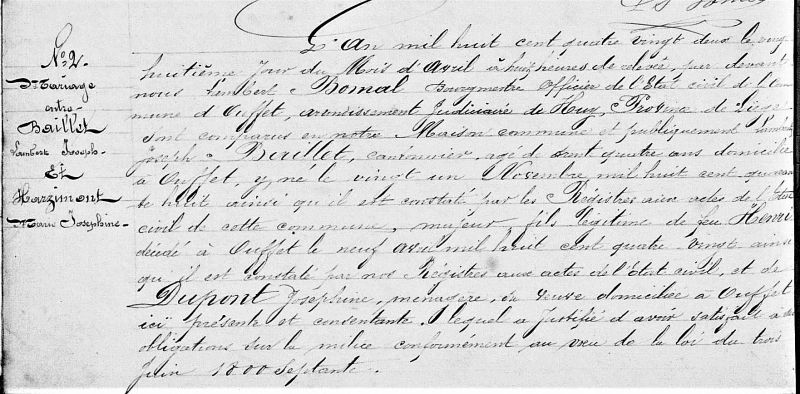 N° 2.
Mariage
entre
Baillet
Lambert Joseph
Et
Marzimont
Marie Josephine
L'An mil huit cent quatre vingt deux le vingt
huitième jour du Mois d'Avril à huit heures de relevée, par devant
nous Lambert Bomal Bourgmestre Officier de l'Etat civil de la Com
mune d'Ouffet, arrondissement Judiciaire de Huy, Province de Liège
sont comparus en notre Maison commune et publiquement Lambert
Joseph Baillet, cantonnier, agé de trent quatre ans domicilié
à Ouffet, y né le vingt un Novembre mil huit cent quaran
te huit ainsi qu'il est constaté par les Régistres aux actes de l'Etat
civil de cette commune, majeur, fils légitime de feu Henri
décédé à Ouffet le neuf avril mil huit cent quatre vingt ainsi
qu'il est constaté par nos Régistres aux actes de l'Etat civil, et de
Dupont Josephine, menagère, sa veuve domiciliée à Ouffet
ici présente et consentante, lequel a justifié d'avoir satisfait à ses
obligations sur la milice conformement au vœu de la loi du trois
Juin 1800 septante.